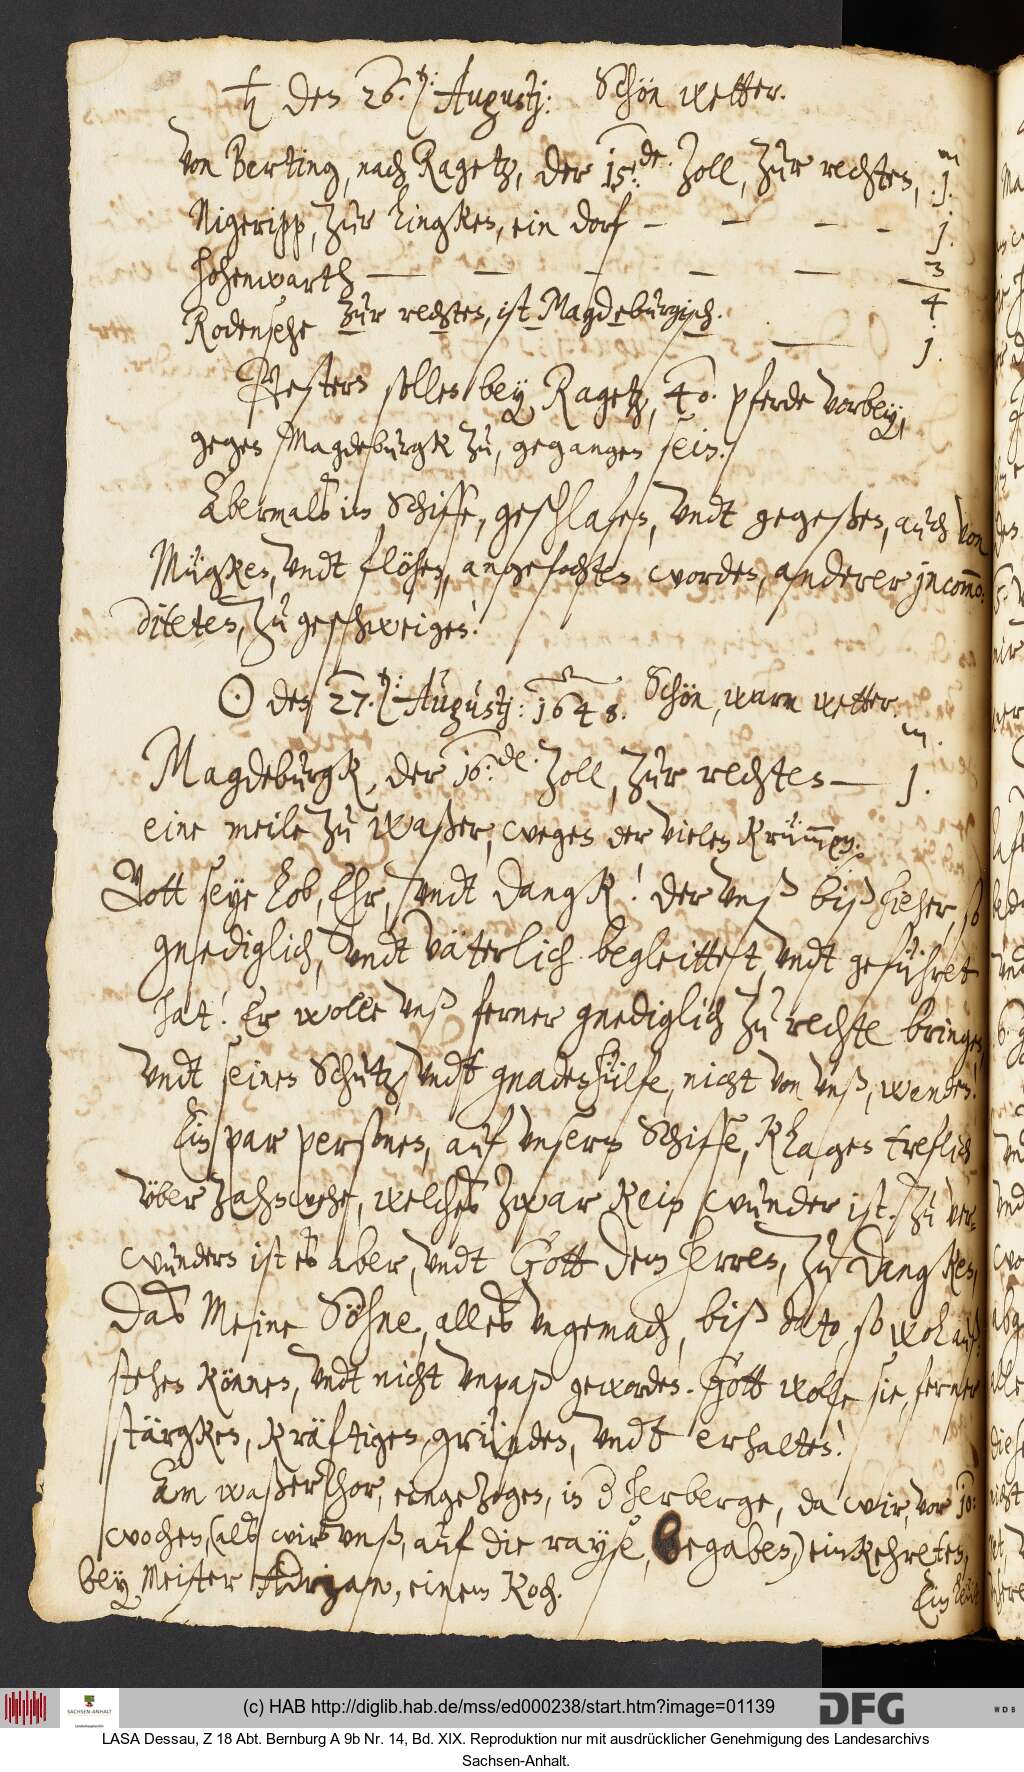 ♄ den 26. t: Augustj: Schön wetter.
m
Von Berting, nach Ragetz, der 15:de. Zoll, zur rechten, j.
Nigeripp, zur Lingken, ein dorf — — — — j.
Hohenwarth — — — — — 3/4
Rodensehe zur rechten, ist Magdeburgisch. — j.
Gestern sollen bey Ragetz, 40. pferde vorbey,
gegen Magdeburgk zu, gegangen sein.
Abermals im Schiffe, geschlafen, undt gegeßen, auch von
Mügken, undt flöhen, angefochten worden, anderer jncom̄o-
diteten, zu geschweigen!
☉ den 27. t: Augustj: 1648. Schön, warm wetter.
m.
Magdeburgk, der 16:de. Zoll, zur rechten — j.
eine meile zu waßer, wegen der vielen Krüm̄en.
Gott seye Lob, Ehr, undt Dangk! der unß biß hieher, so
gnediglich, undt väterlich begleittet, undt geführet
hat! Er wolle unß ferner gnediglich zu rechte bringen,
undt seinen Schutz, undt gnadenhülfe, nicht von unß, wenden!
Ein par personen, auf unserm Schiffe, klagen treflich
über Zahnwehe, welches zwar kein wunder ist. Zu ver-
wundern ist es aber, undt Gott dem Herren, zu dangken,
Das Meine Söhne, alles ungemach, biß dato, so wol auß-
stehen können, undt nicht unpaß geworden. Gott wolle sie, ferner
stärgken, kräftigen, gründen, undt erhalten!
Am waßerthor, eingezogen, in die herberge, da wir, vor 10:
wochen, (als wir unß, auf die rayse, begaben,) einkehreten,
bey Meister Adrian, einem Koch.
Ein
(c) HAB http://diglib.hab.de/mss/ed000238/start.htm?image=01139
SACHSEN-ANHALT
DFG
WDB
LASA Dessau, Z 18 Abt. Bernburg A 9b Nr. 14, Bd. XIX. Reproduktion nur mit ausdrücklicher Genehmigung des Landesarchivs
Sachsen-Anhalt.